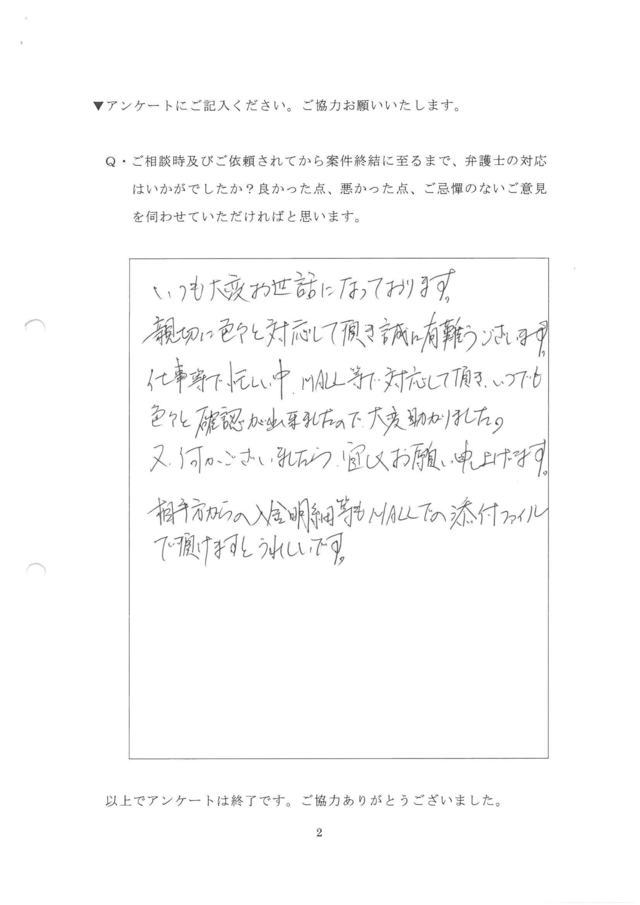 ▼アンケートにご記入ください。ご協力お願いいたします。
Q・ご相談時及びご依頼されてから案件終結に至るまで、弁護士の対応
はいかがでしたか？良かった点、悪かった点、ご忌憚のないご意見
を伺わせていただければと思います。
いつも大変お世話になっております。
親切に色々と対応して頂き誠に有難うございます。
仕事等で忙しい中、MALL等で対応して頂き、いつでも
色々と確認が出来ましたので大変助かりました。
又、何かございましたら、宜しくお願い申し上げます。
相手方からの入金明細等もMALLでの添付ファイル
で頂けますとうれしいです。
以上でアンケートは終了です。ご協力ありがとうございました。
2